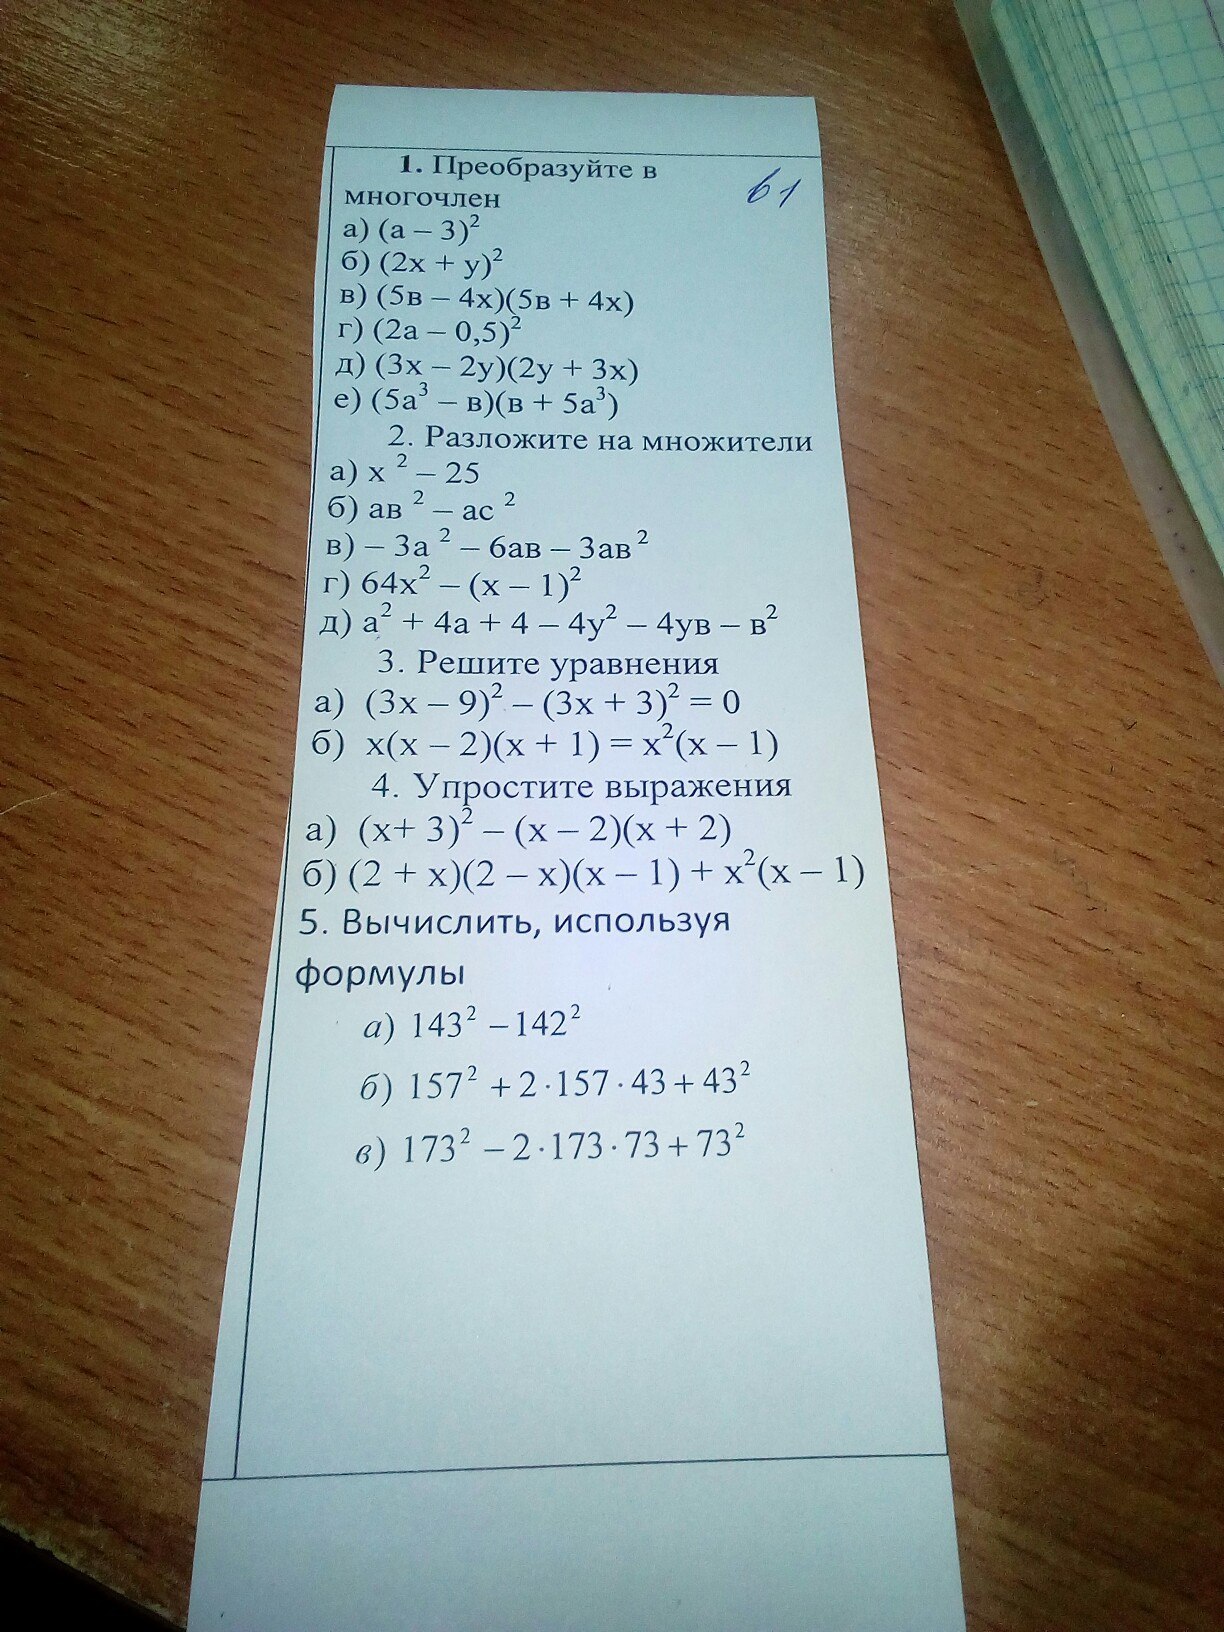 1. Преобразуйте в
многочлен
в1
а) (а – 3)²
б) (2х + у)²
в) (5в – 4х)(5в + 4х)
г) (2а – 0,5)²
д) (3х – 2у)(2у + 3х)
е) (5а³ – в)(в + 5а³)
2. Разложите на множители
а) х ² – 25
б) ав ² – ас ²
в) – 3а ² – 6ав – 3ав ²
г) 64х² – (х – 1)²
д) а² + 4а + 4 – 4у² – 4ув – в²
3. Решите уравнения
а) (3х – 9)² – (3х + 3)² = 0
б) х(х – 2)(х + 1) = х²(х – 1)
4. Упростите выражения
а) (х+ 3)² – (х – 2)(х + 2)
б) (2 + х)(2 – х)(х – 1) + х²(х – 1)
5. Вычислить, используя
формулы
а) 143² – 142²
б) 157² + 2·157·43 + 43²
в) 173² – 2·173·73 + 73²